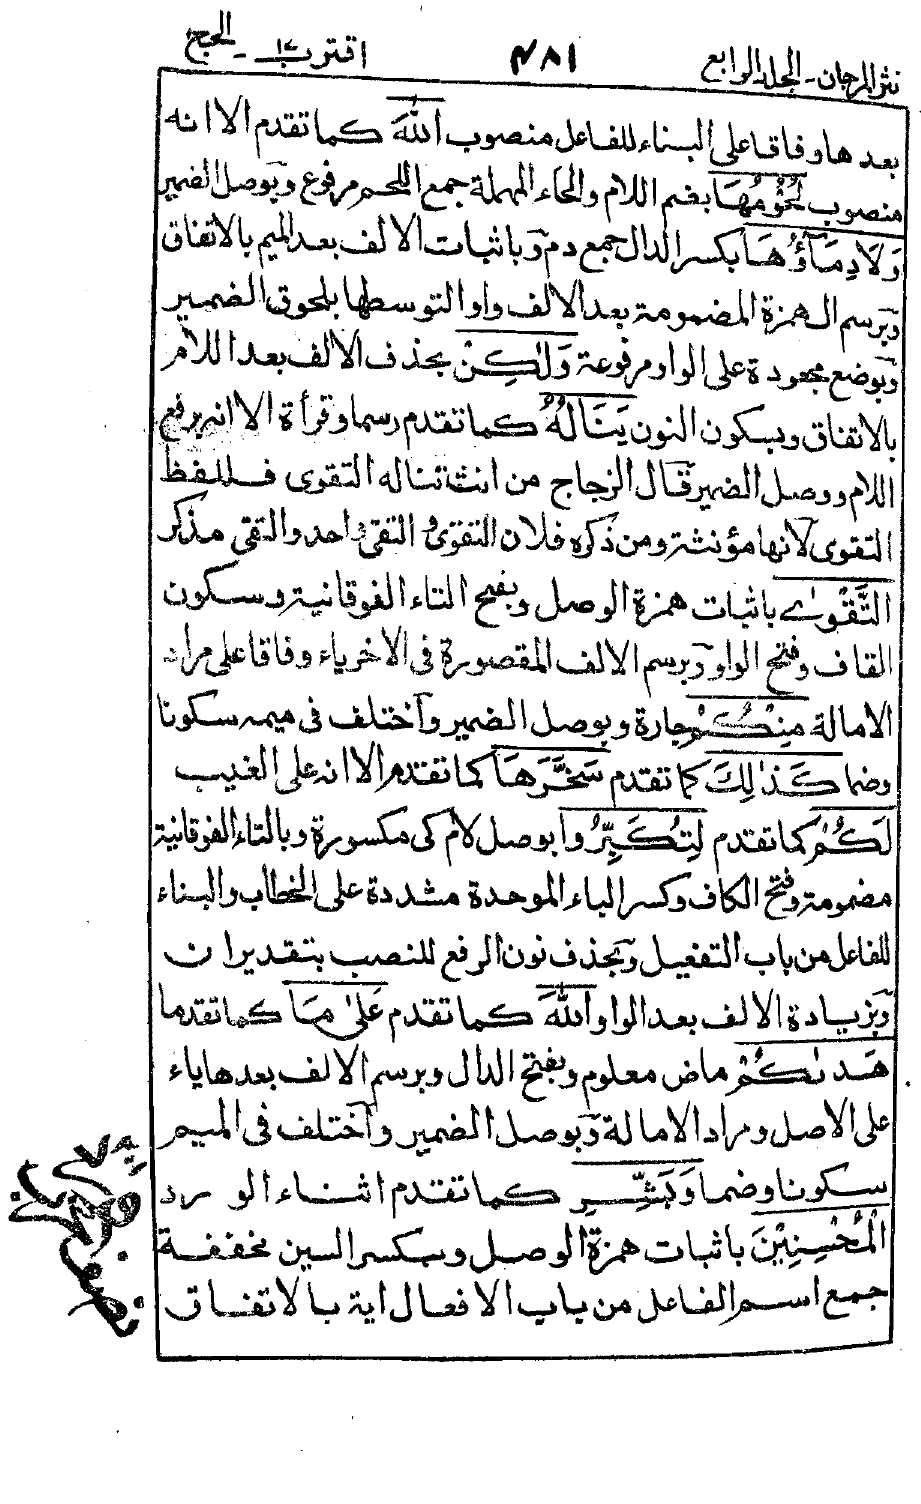 نثر المرجان - الجلد الرابع ۴۸۱ اقترب ۱۷ - الحج
بعدها وفاقا على البناء للفاعل منصوب اللهَ كما تقدم الا انه
منصوب لُحُوْمُهَا بضم اللام والحاء المهملة جمع اللحم مرفوع وبوصل الضمير
وَلَا دِمَآؤُهَا بكسر الدال جمع دم وباثبات الالف بعد الميم بالاتفاق
وبرسم الهمزة المضمومة بعد الالف واوا لتوسطها بلحوق الضمير
وبوضع مجعودة على الواو مرفوعة وَلٰكِنْ بحذف الالف بعد اللام
بالاتفاق وبسكون النون يَنَالُهُ كما تقدم رسما وقرأة الا انه برفع
اللام ووصل الضمير قال الزجاج من انث تناله التقوى فللفظ
التقوى لانها مؤنثة ومن ذكره فلان التقوى والتقى واحد والتقى مذكر
التَّقْوٰى باثبات همزة الوصل وبفتح التاء الفوقانية وسكون
القاف وفتح الواو وبرسم الالف المقصورة فى الاخر ياء وفاقا على مراد
الامالة مِنْكُمْ جارة وبوصل الضمير واختلف فى ميمه سكونا
وضما كَذٰلِكَ كما تقدم سَخَّرَهَا كما تقدم الا انه على الغيب
لَكُمْ كما تقدم لِتُكَبِّرُوا بوصل لام كى مكسورة وبالتاء الفوقانية
مضمومة وفتح الكاف وكسر الباء الموحدة مشددة على الخطاب والبناء
للفاعل من باب التفعيل وبحذف نون الرفع للنصب بتقدير ان
وبزيادة الالف بعد الواو اللهَ كما تقدم عَلٰى مَا كما تقدما
هَدٰىكُمْ ماض معلوم وبفتح الدال وبرسم الالف بعدها ياء
على الاصل ومراد الامالة وبوصل الضمير واختلف فى الميم
سكونا وضما وَبَشِّرِ كما تقدم اثناء الورد
الْمُحْسِنِيْنَ باثبات همزة الوصل وبكسر السين مخففة
جمع اسم الفاعل من باب الافعال اية بالاتفاق